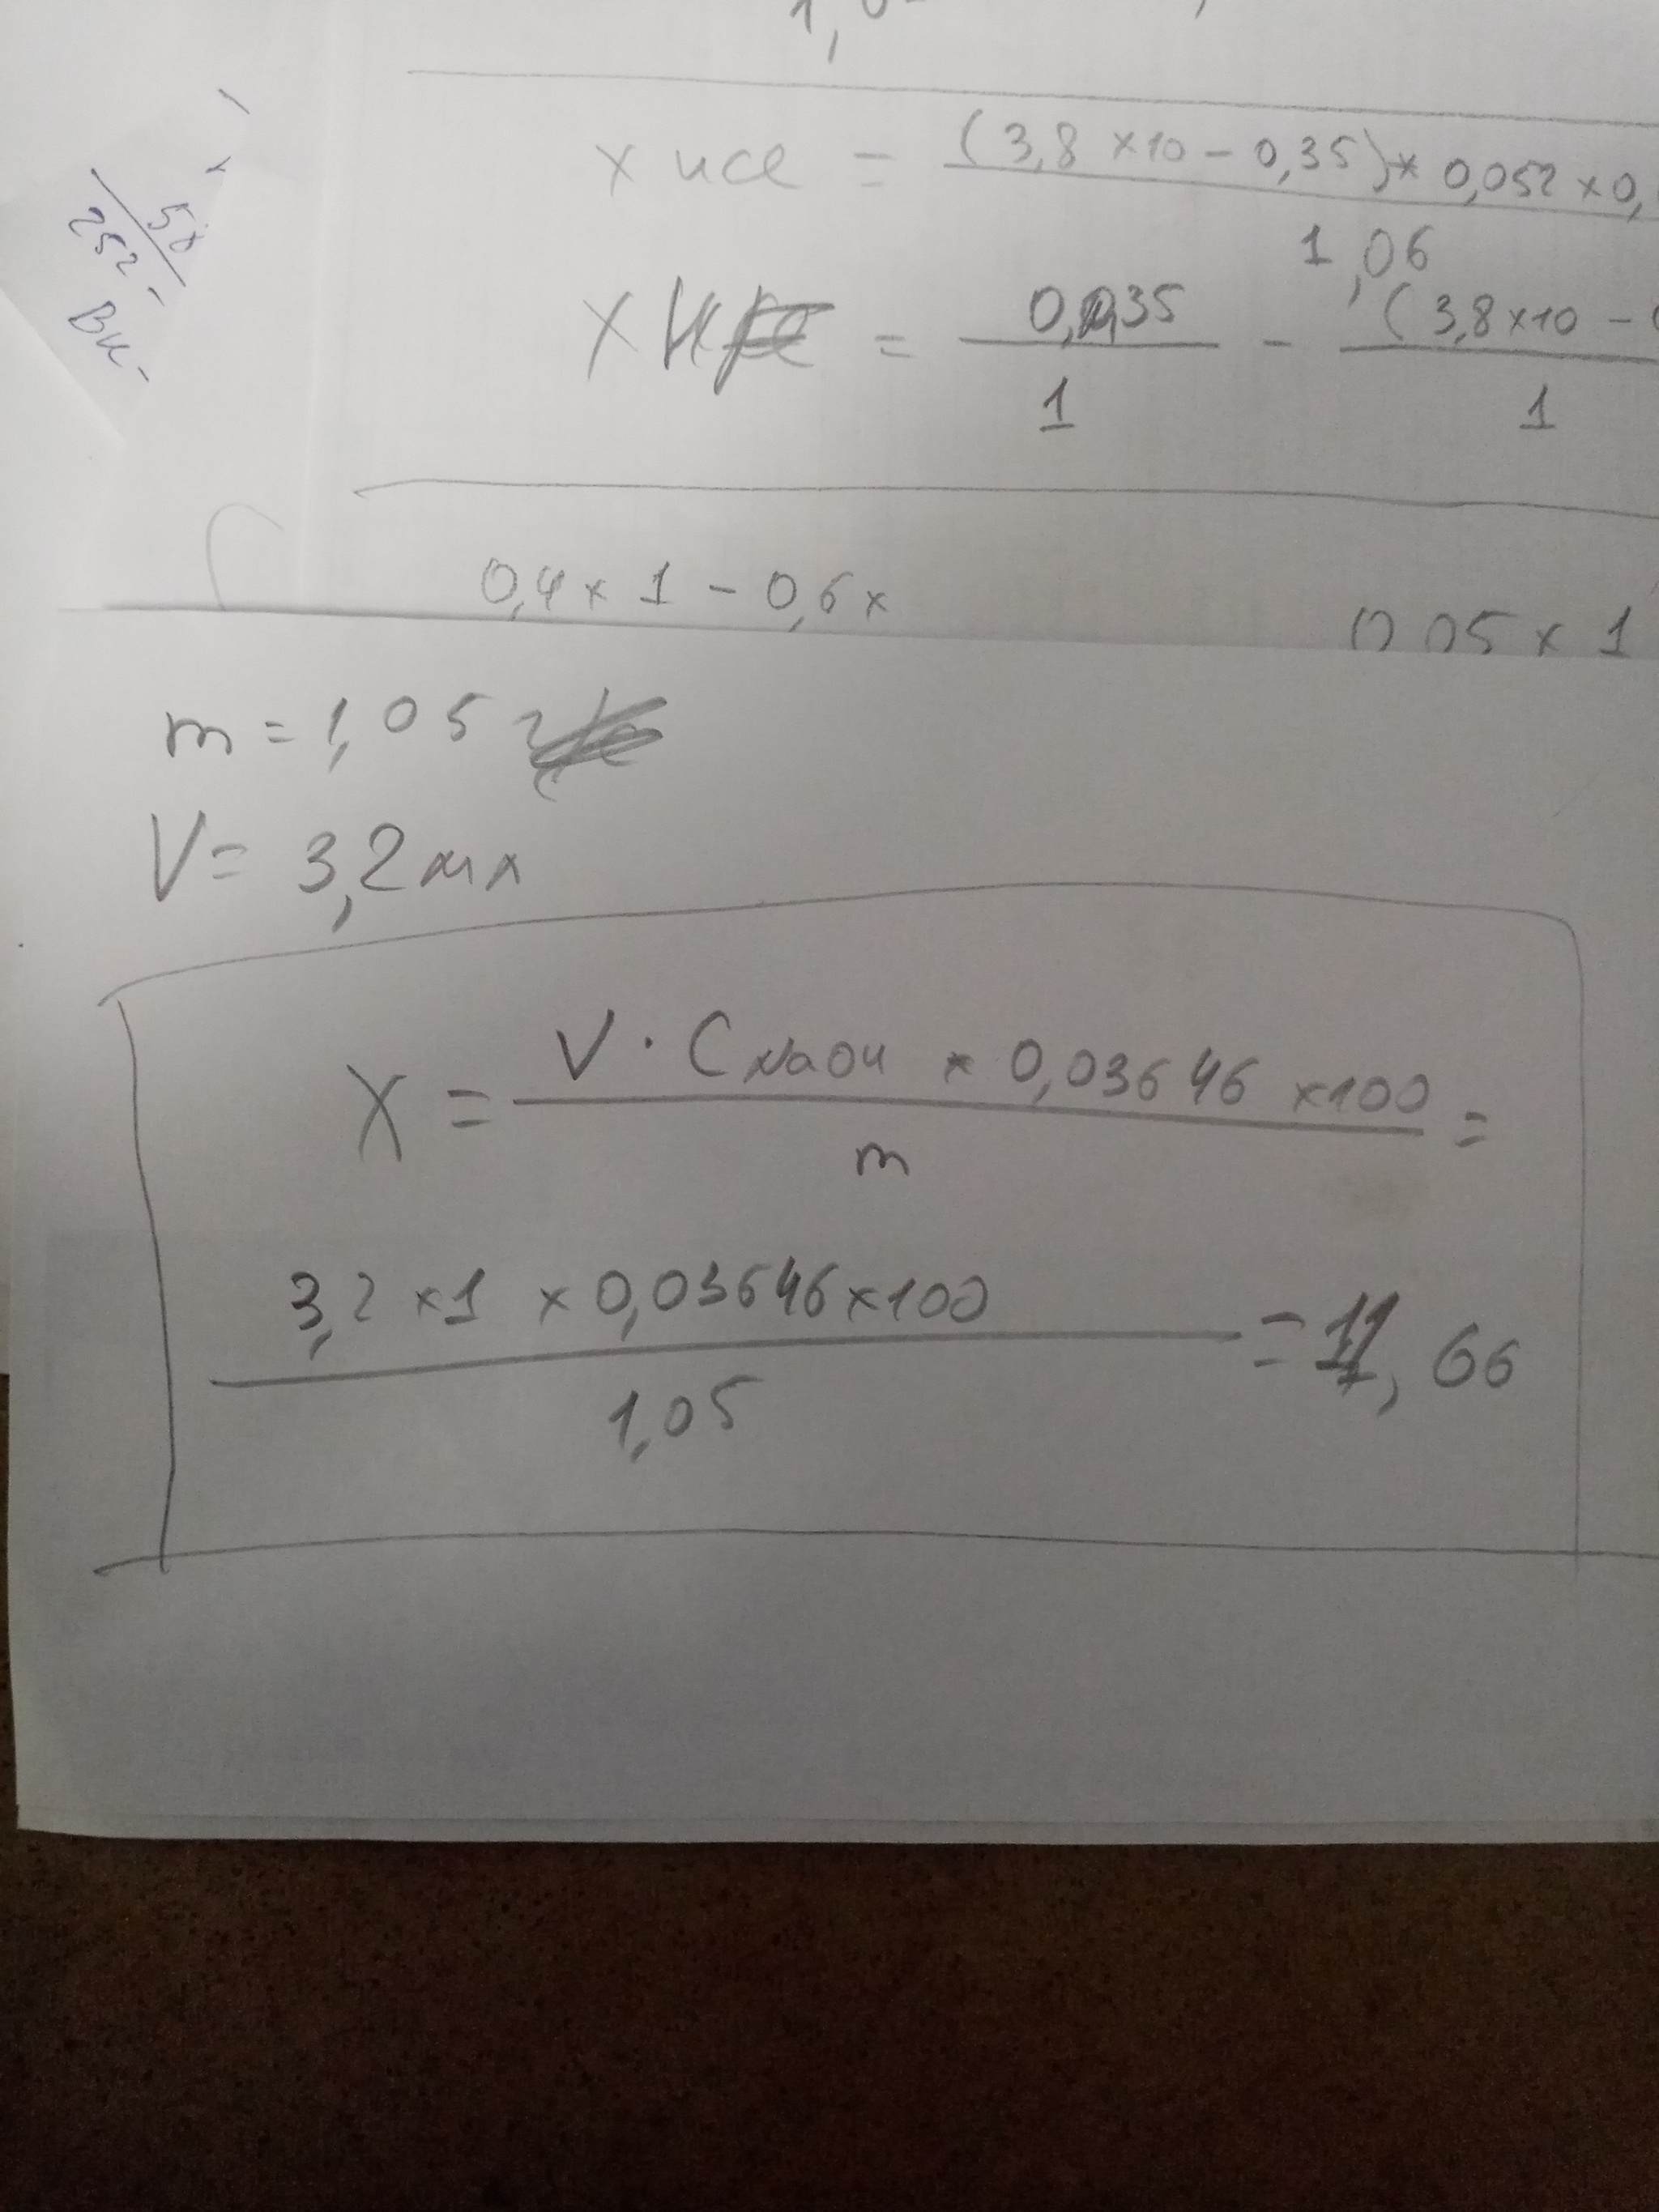 1,0
X HCl = (3,8 × 10 - 0,35) × 0,052 × 0,
1,06
X = 0,035 / 1 - (3,8 × 10 - / 1
0,4 × 1 - 0,6 ×
0,05 × 1
50
252
m = 1,05 г
V = 3,2 мл
X = V · C NaOH × 0,03646 × 100 / m =
3,2 × 1 × 0,03646 × 100 / 1,05 = 11,66